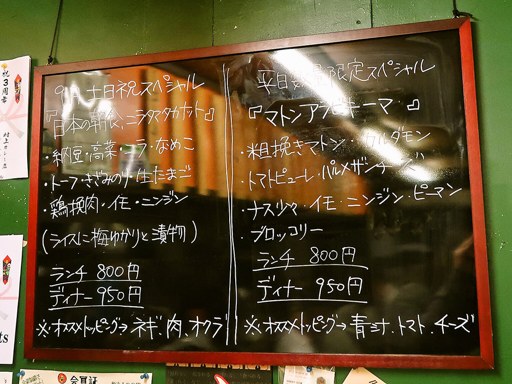 祝3周年
9月 土日祝スペシャル
・納豆・高菜・オクラ・なめこ
・トーフ・きざみのり・生たまご
鶏挽肉・イモ・ニンジン
(ライスに梅ゆかりと漬物)
ランチ 800円
ディナー 950円
※オススメトッピング→ネギ、肉、オクラ
限定スペシャル
『マトン キーマ』
・粗挽きマトン・カルダモン
・トマトピューレ・パルメザンチーズ
・ナス・イモ・ニンジン・ピーマン
・ブロッコリー
ランチ 800円
ディナー 950円
※オススメトッピング→青ナ、トマト、チーズ
会員証